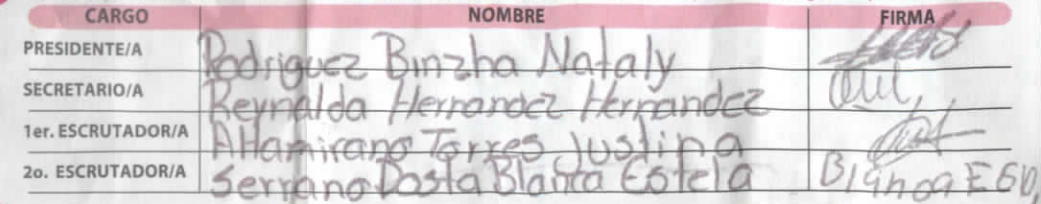 CARGO NOMBRE FIRMA
PRESIDENTE/A Rodriguez Binzha Nataly
SECRETARIO/A Reynalda Hernandez Hernandez
1er. ESCRUTADOR/A Altamirano Torres Justina
2o. ESCRUTADOR/A Serrano Dosta Blanca Estela